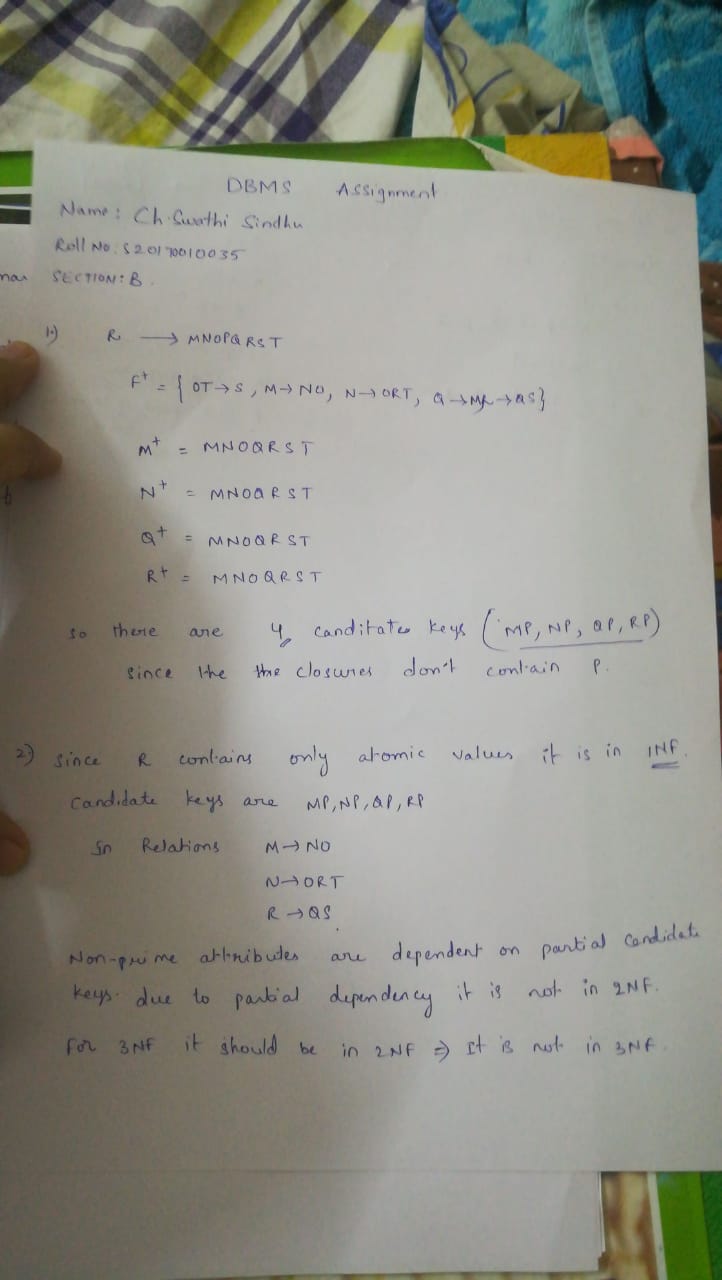 DBMS Assignment
Name: Ch. Swathi Sindhu
Roll No: S20170010035
SECTION: B.
1.) R → MNOPQRST
F⁺ = { OT→S, M→NO, N→ORT, Q→MR→QS}
M⁺ = MNOQRST
N⁺ = MNOQRST
Q⁺ = MNOQRST
R⁺ = MNOQRST
so there are 4 canditates keys (MP, NP, QP, RP)
since the the closures don't contain P.
2) since R contains only atomic values it is in 1NF.
Candidate keys are MP, NP, QP, RP
In Relations M→NO
N→ORT
R→QS.
Non-prime attributes are dependent on partial candidate
keys. due to partial dependency it is not in 2NF.
For 3NF it should be in 2NF ⇒ It is not in 3NF.